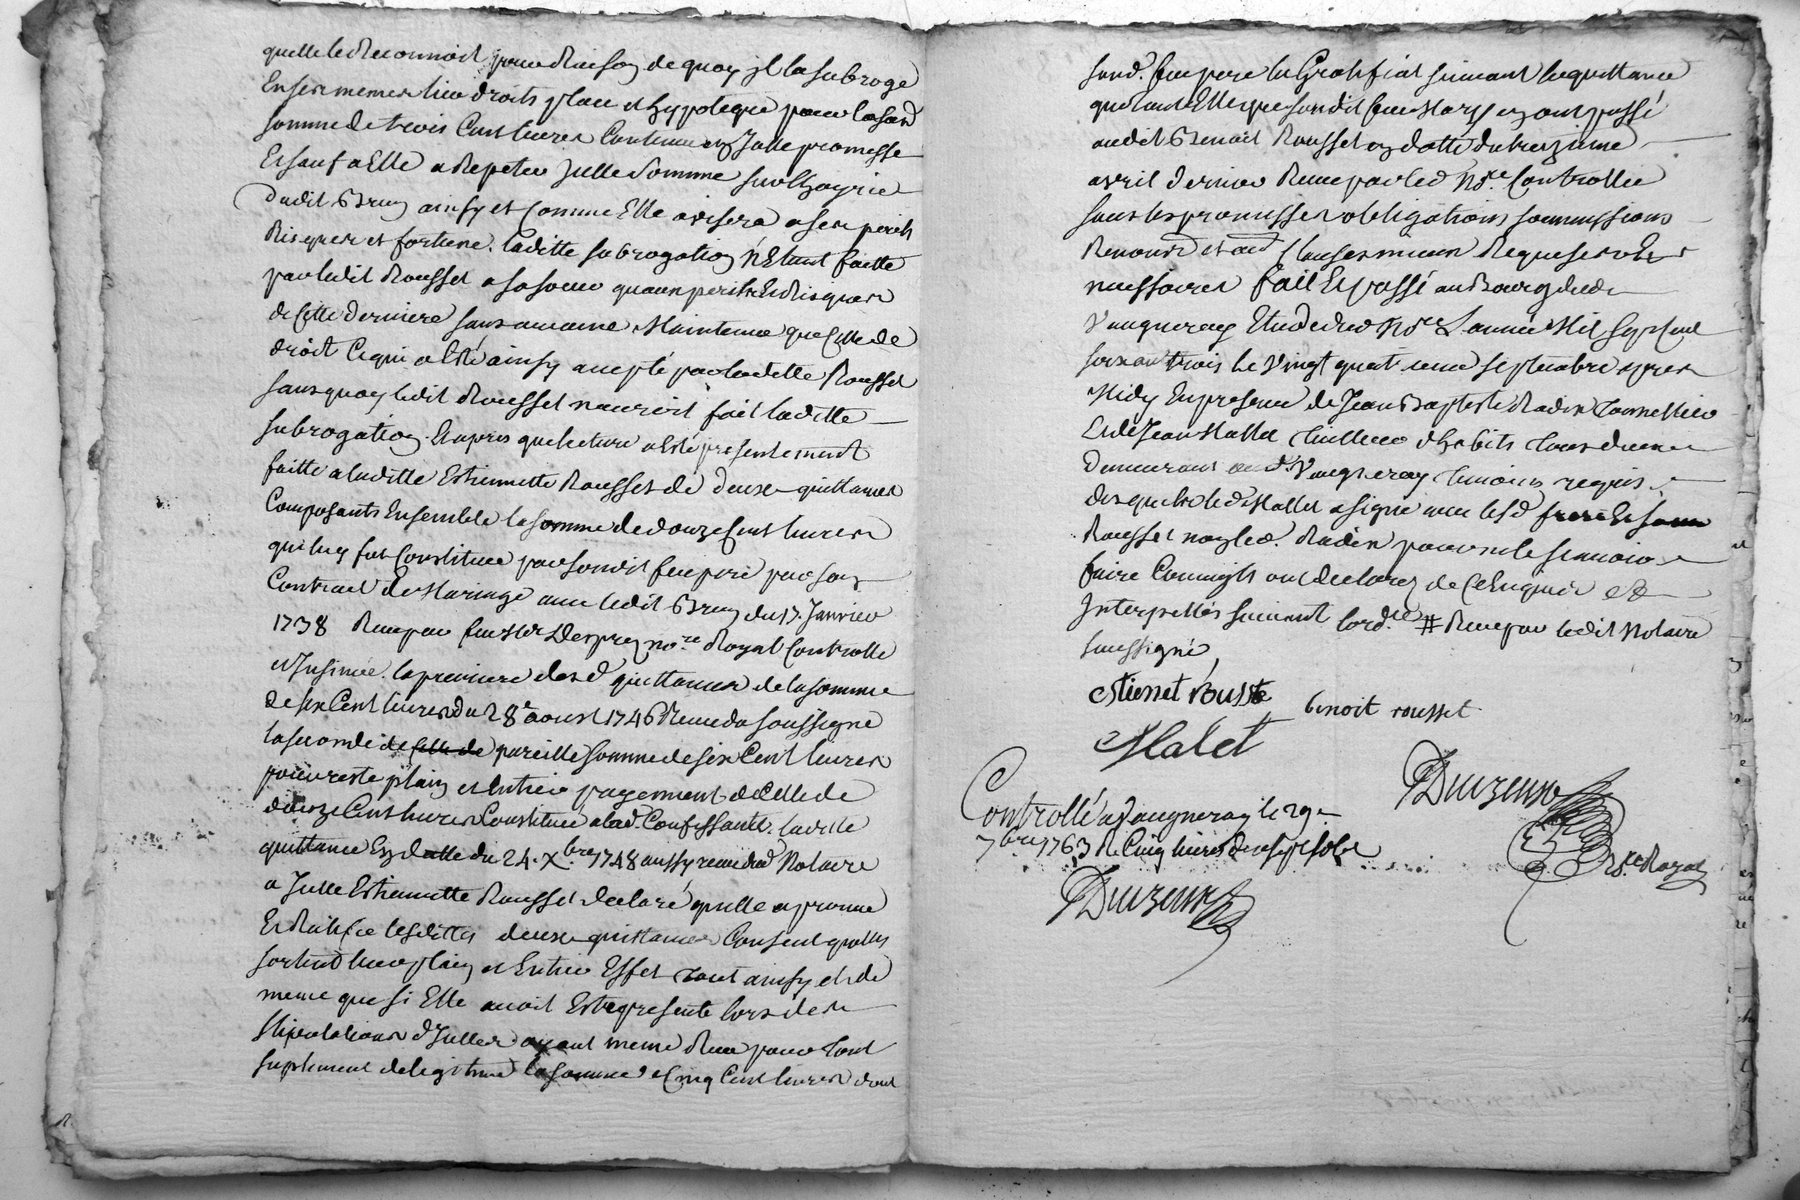 quelle le Reconnoit pour Raison de quoy jl la subroge
En ses memes lieu droits place et hypoteque pour lasusd
somme de trois Cent livres Contenue en Jcelle promesse
Et sauf a Elle a Repeter Jcelle Somme sur l'hoyrie
dudit Brun ainsy et Comme Elle avisera a ses perils
Risques et fortune. laditte subrogation n'Etant faitte
par ledit Rousset a sa soeur quaux perils Et Risques
de Cette derniere sans aucune Maintenue que Celle de
droit Ce qui a Esté ainsy accepté par laditte Rousset
sans quoy ledit Rousset nauroit fait laditte
subrogation. Et apres que lecture a Esté presentement
faitte a laditte Estiennette Rousset de deux quittances
Composants Ensemble la somme de douze Cent livres
qui luy fut Constituée par sondit feu pere par son
Contract de Mariage avec ledit Brun du 17. Janvier
1738 Recu par feu Mer Desprez nore. Royal Controllé
et Insinué. la premiere desd quittances de la somme
de six Cent livres du 28e aoust 1746 Recue du soussigné
la seconde de Celle de pareille somme de six Cent livres
pour reste plain et Entier payement de Celle de
douze Cent livres Constituée a lad. Confessante. laditte
quittance En datte du 24. Xbre 1748 aussy recue dud Notaire
a Jcelle Estiennette Rousset declaré quelle approuve
Et Ratifie lesdittes deux quittances Consent quelles
sortent leur plain et Entier Effet tout ainsy et de
meme que si Elle avoit Esté presente lors des
stipulations d'Jcelles ayant meme Recu pour tout
suplement de legitime la somme de Cinq Cent livres dont
sond. feu pere la Gratifiat suivant la quittance
que tant Elle que sondit feu Mary en ont passé
audit Benoit Rousset en datte du treizieme
avril dernier Recue par led Nore. Controllée
sous les promesses obligations soumissions
Renond et aud Clauses mieux Requises et
necessaires fait Et passé au Bourg dud
Vaugneray Etude dud Nore L'année Mil sept Cent
soixante trois le Vingt quatrieme septembre apres
Midy En presence de Jean Baptiste Radix
Et de Jean Mallet tailleur d'habits tous deux
demeurant aud. Vaugneray temoins requis
desquels led. Mallet a signé avec lesd frere Et soeur
Rousset non led. Radix pour ne le scavoir
faire Comme ils ont declarez de Ce Enquis Et
Interpellés suivant lord.ce # Recu par ledit Notaire
soussigné
estiennet rousset benoit rousset
Malet
Controllé a Vaugneray le 29e
7bre 1763 R Cinq livres dix sept sols
Nre Royal